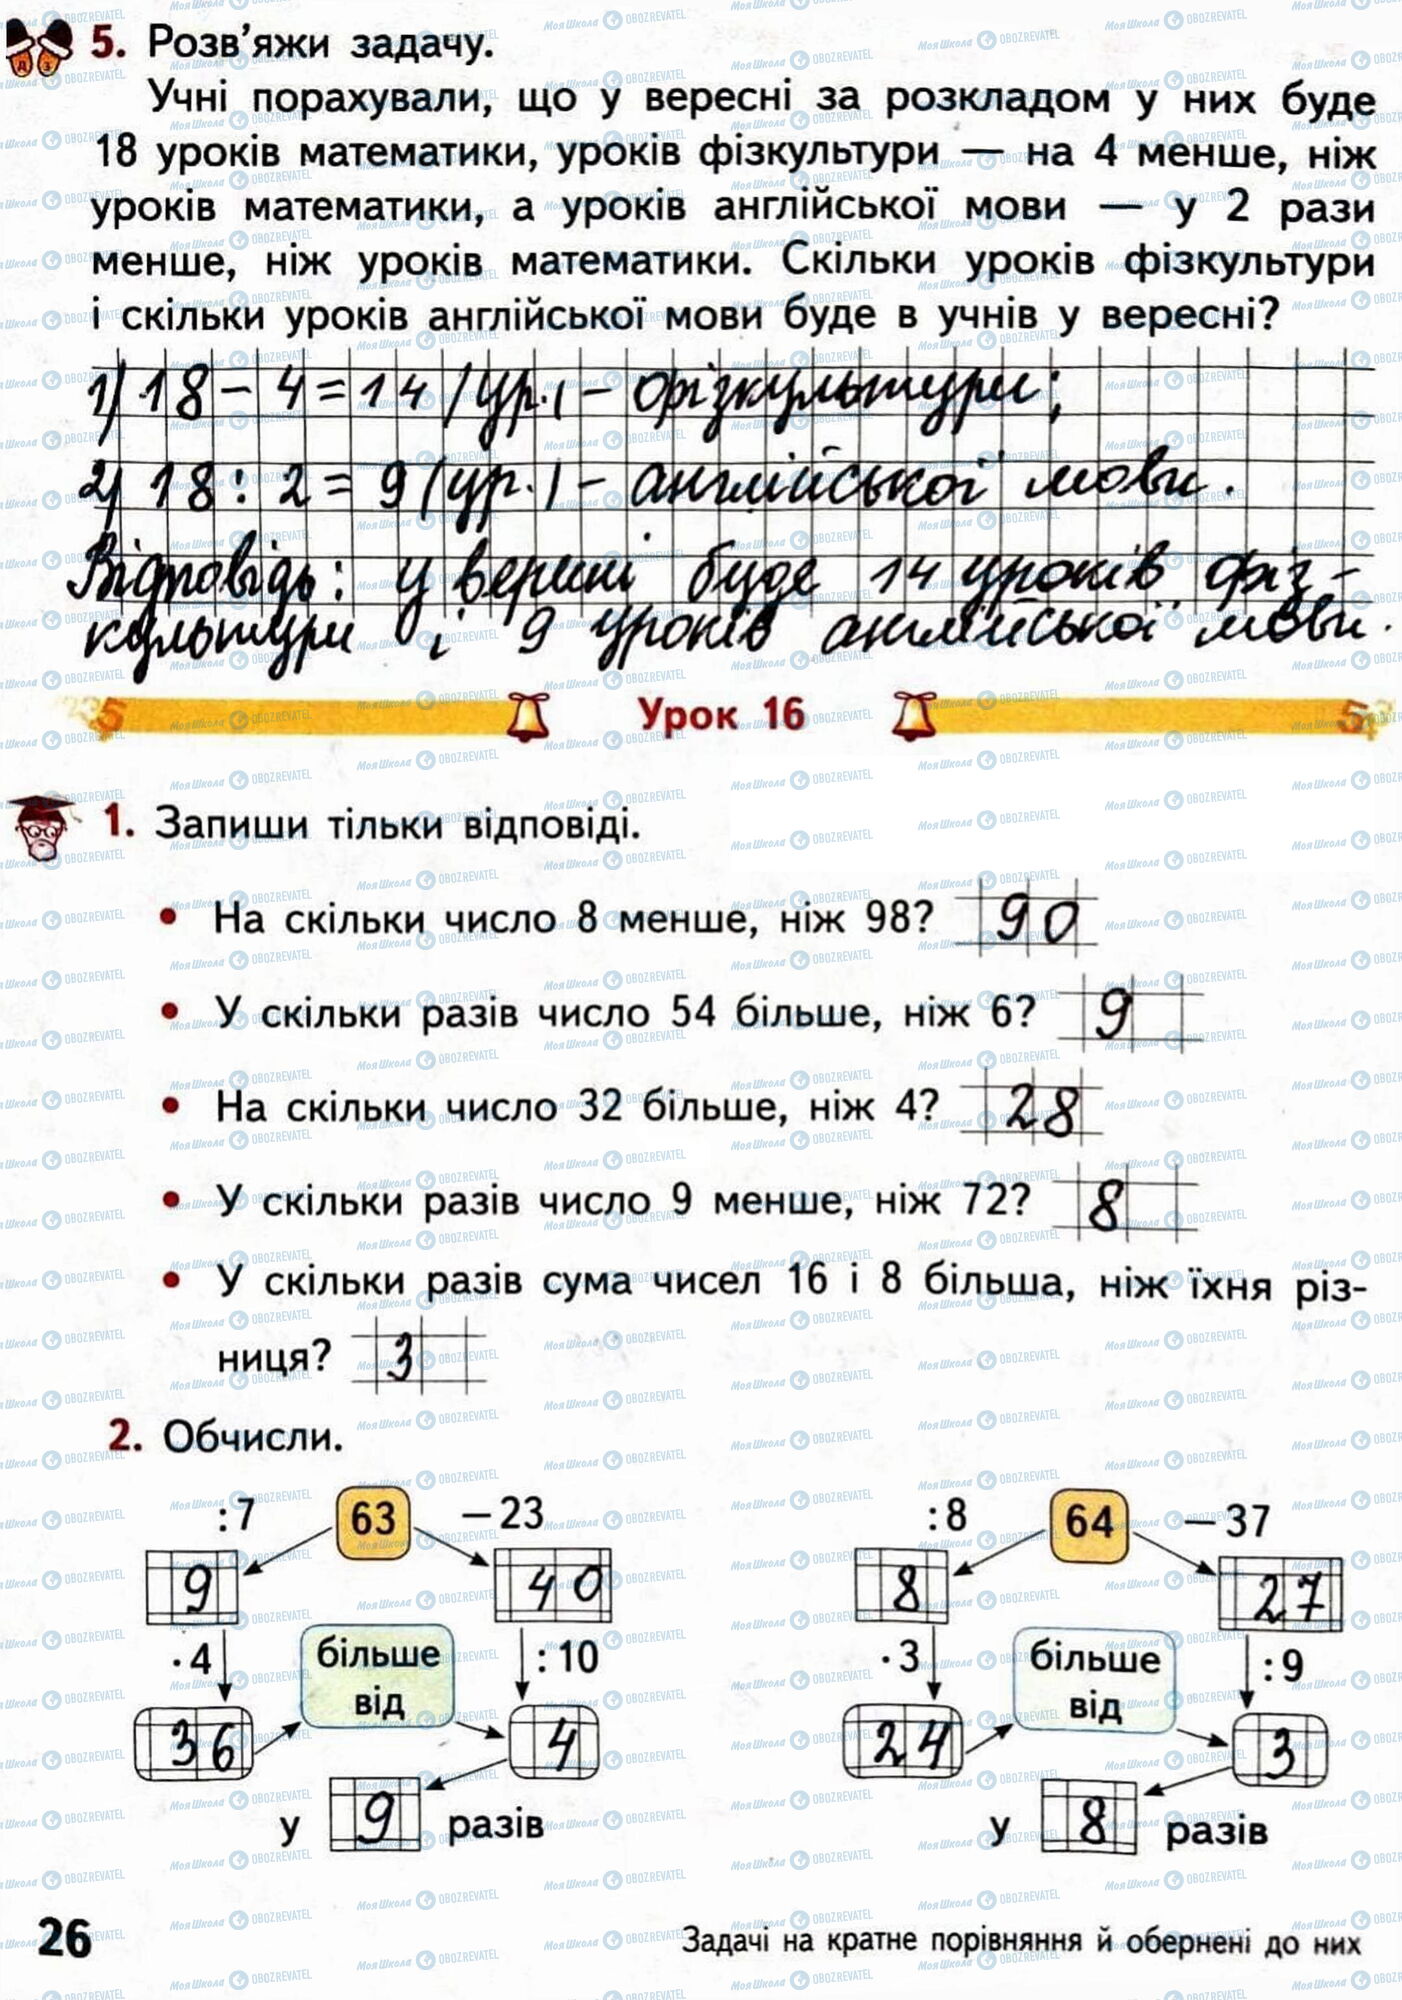 5. Розв'яжи задачу.
Учні порахували, що у вересні за розкладом у них буде
18 уроків математики, уроків фізкультури — на 4 менше, ніж
уроків математики, а уроків англійської мови — у 2 рази
менше, ніж уроків математики. Скільки уроків фізкультури
і скільки уроків англійської мови буде в учнів у вересні?
1) 18 - 4 = 14 (ур.) - фізкультури;
2) 18 : 2 = 9 (ур.) - англійської мови.
Відповідь: у вересні буде 14 уроків фіз-
культури і 9 уроків англійської мови.
Урок 16
1. Запиши тільки відповіді.
• На скільки число 8 менше, ніж 98? 90
• У скільки разів число 54 більше, ніж 6? 9
• На скільки число 32 більше, ніж 4? 28
• У скільки разів число 9 менше, ніж 72? 8
• У скільки разів сума чисел 16 і 8 більша, ніж їхня різ-
ниця? 3
2. Обчисли.
:7 63 −23 :8 64 −37
9 40 8 27
·4 більше від :10 ·3 більше від :9
36 4 24 3
у 9 разів у 8 разів
26 Задачі на кратне порівняння й обернені до них
МояШкола OBOZREVATEL